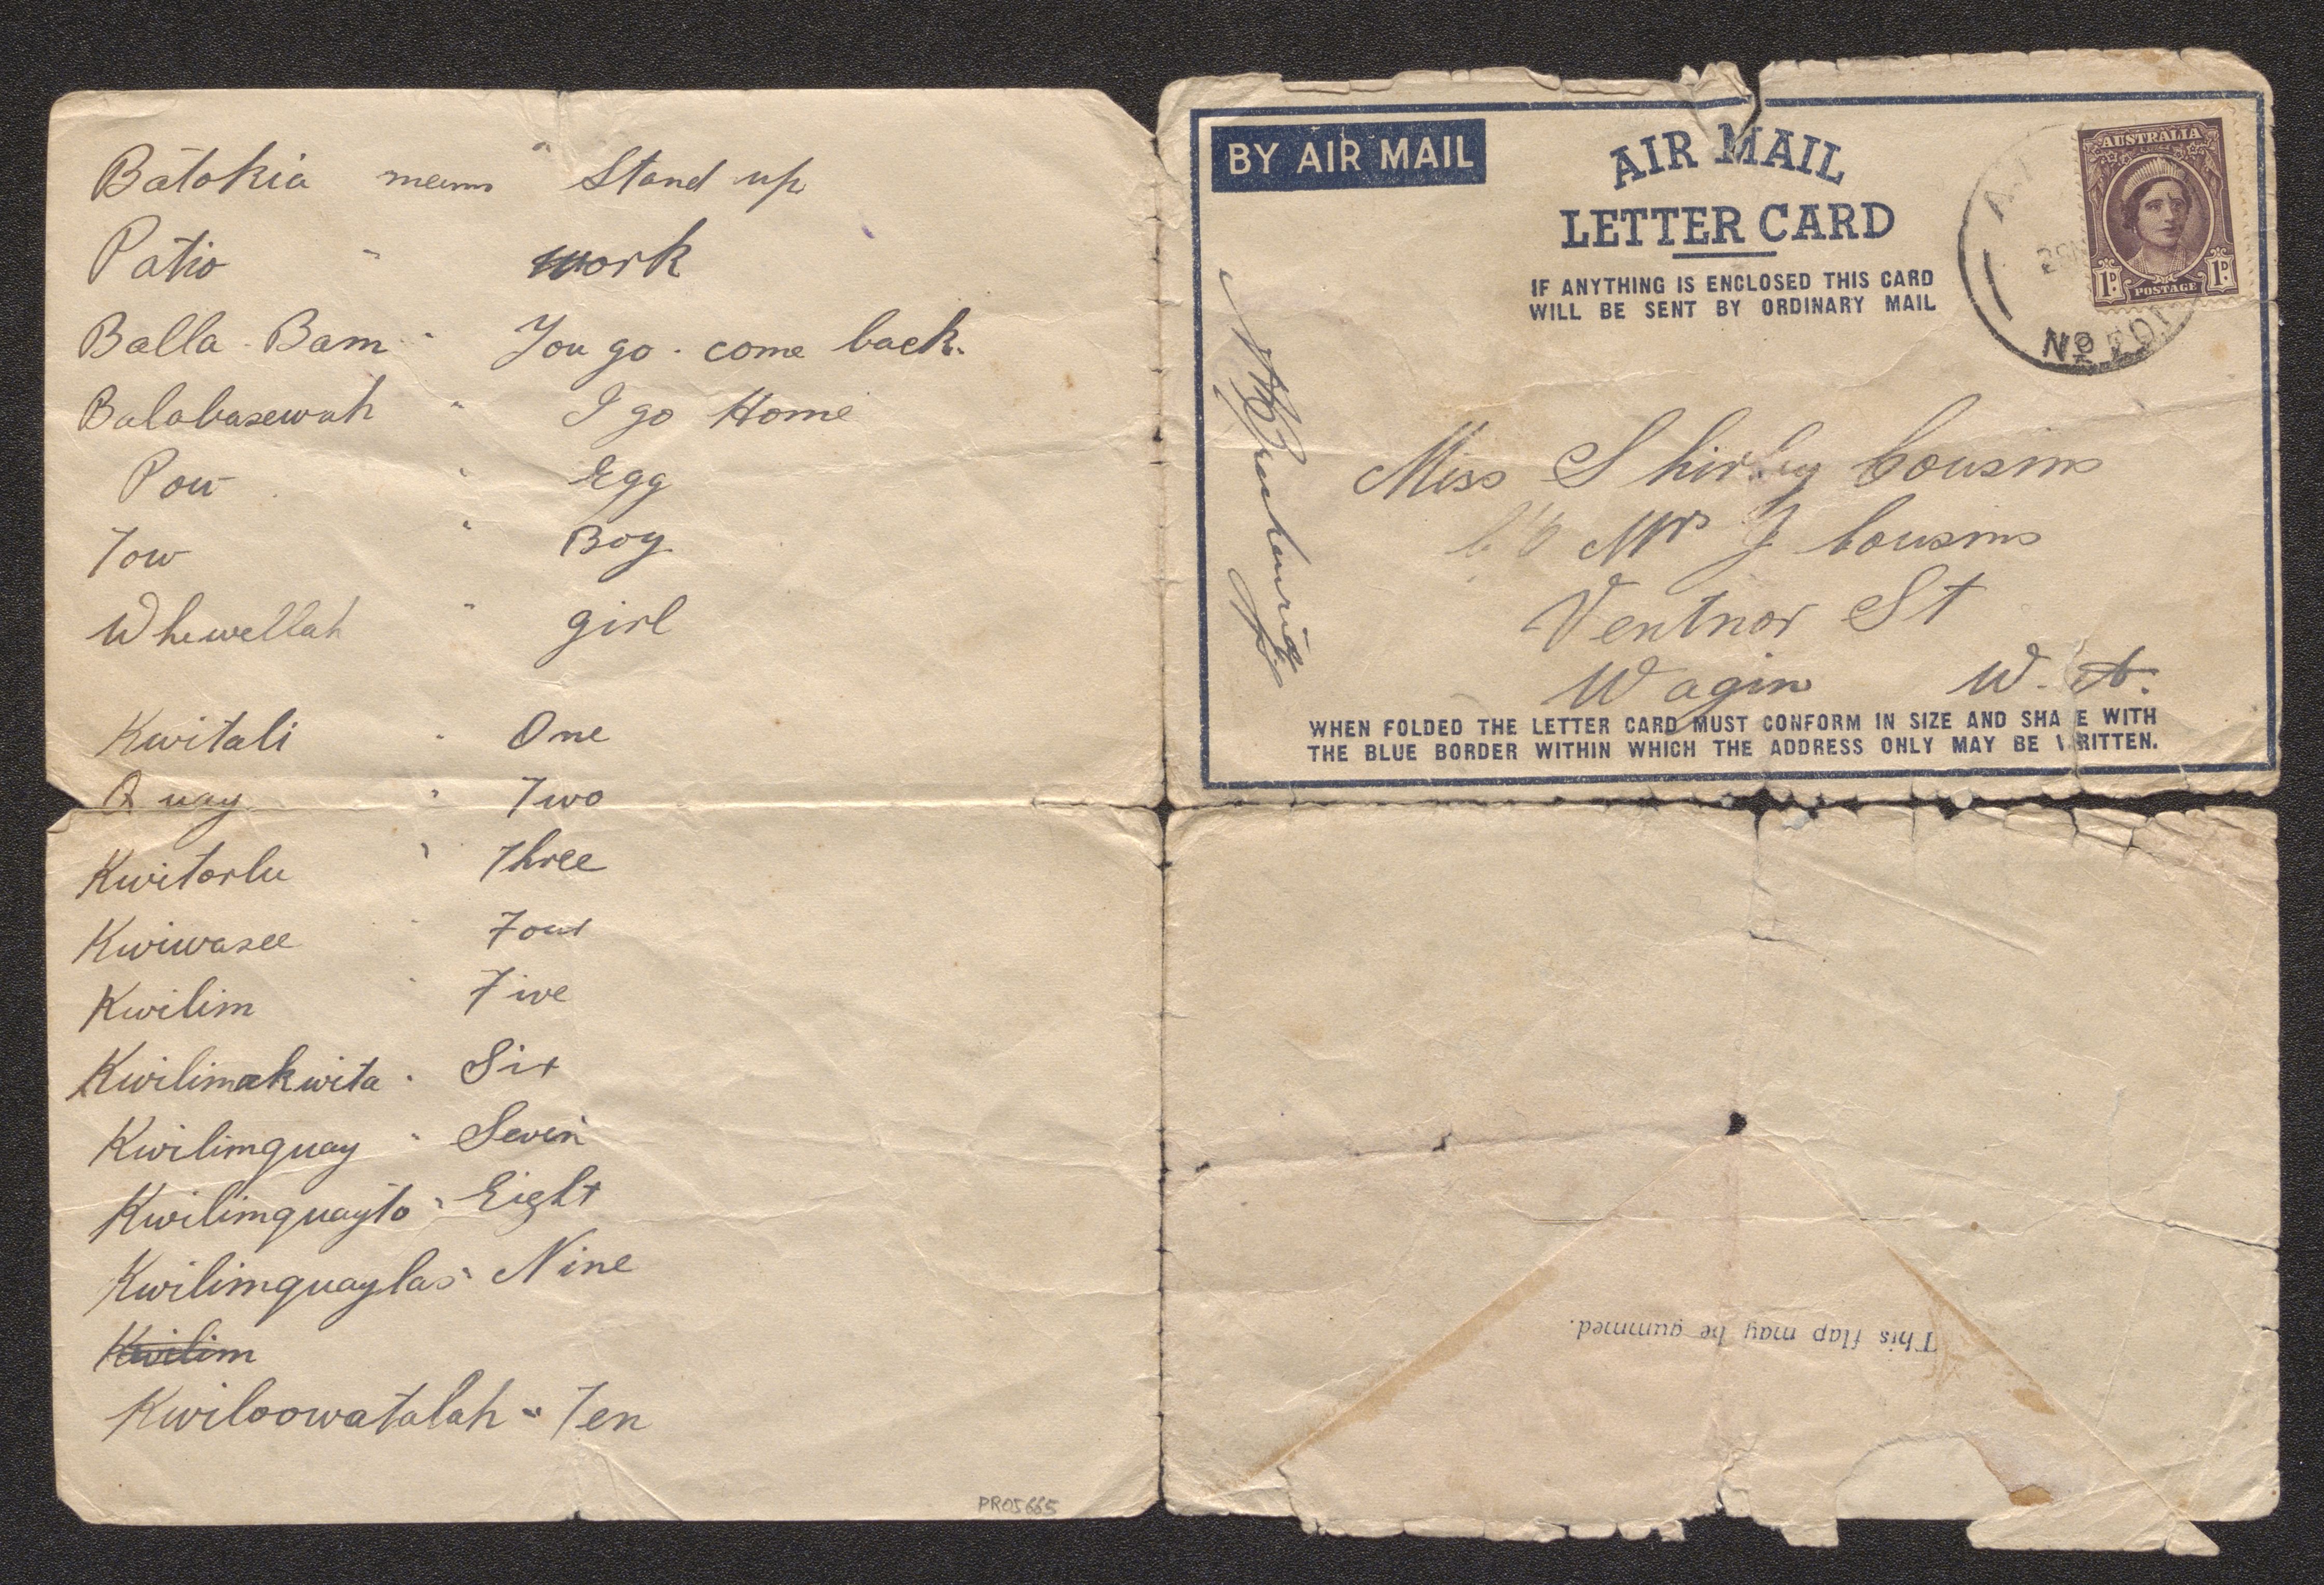 Batokia means Stand up
Patio " work
Balla - Bam " You go - come back.
Balabasewah " I go Home
Pow " Egg
Tow " Boy
Whewellah " girl
Kwitali " One
Quay " Two
Kwitorlu " Three
Kwiwasee " Four
Kwilim " Five
Kwilimakwita " Six
Kwilimquay " Seven
Kwilimquayto " Eight
Kwilimquaylas " Nine
Kwilim
Kwiloowatalah " Ten
PR05665
BY AIR MAIL
AIR MAIL
LETTER CARD
IF ANYTHING IS ENCLOSED THIS CARD
WILL BE SENT BY ORDINARY MAIL
AUSTRALIA
1D POSTAGE 1D
No
Miss Shirley Cousins
C/o Mrs J Cousins
Ventnor St
Wagin W. A.
WHEN FOLDED THE LETTER CARD MUST CONFORM IN SIZE AND SHA E WITH
THE BLUE BORDER WITHIN WHICH THE ADDRESS ONLY MAY BE WRITTEN.
This flap may be gummed.